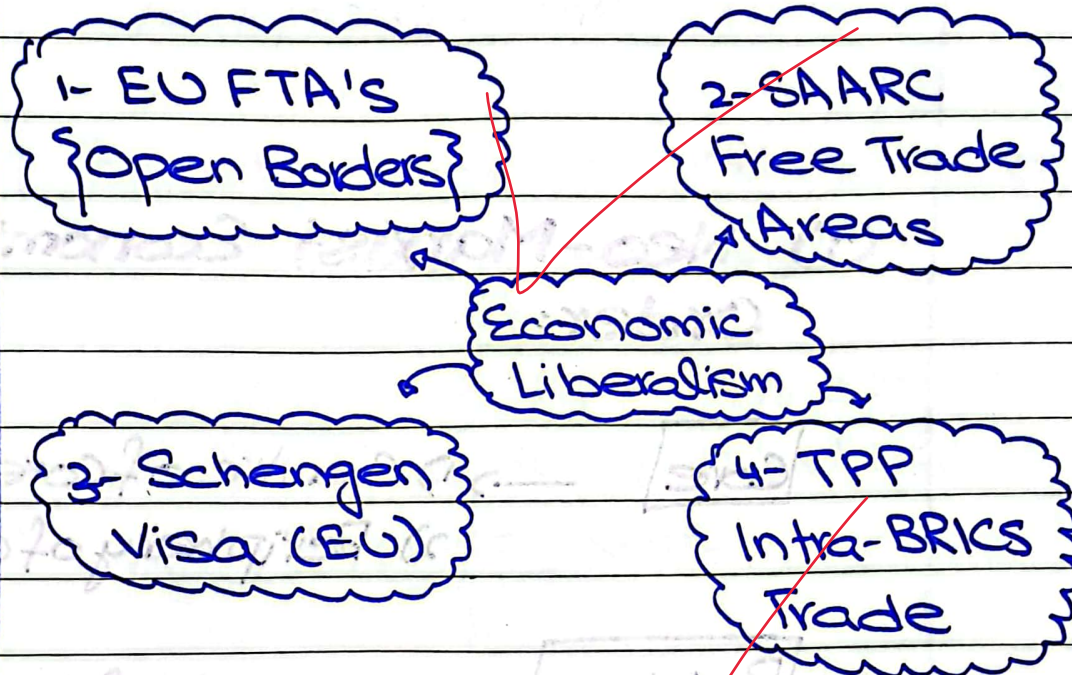 1- EU FTA's
{Open Borders}
2- SAARC
Free Trade
Areas
Economic
Liberalism
3- Schengen
Visa (EU)
4- TPP
Intra-BRICS
Trade